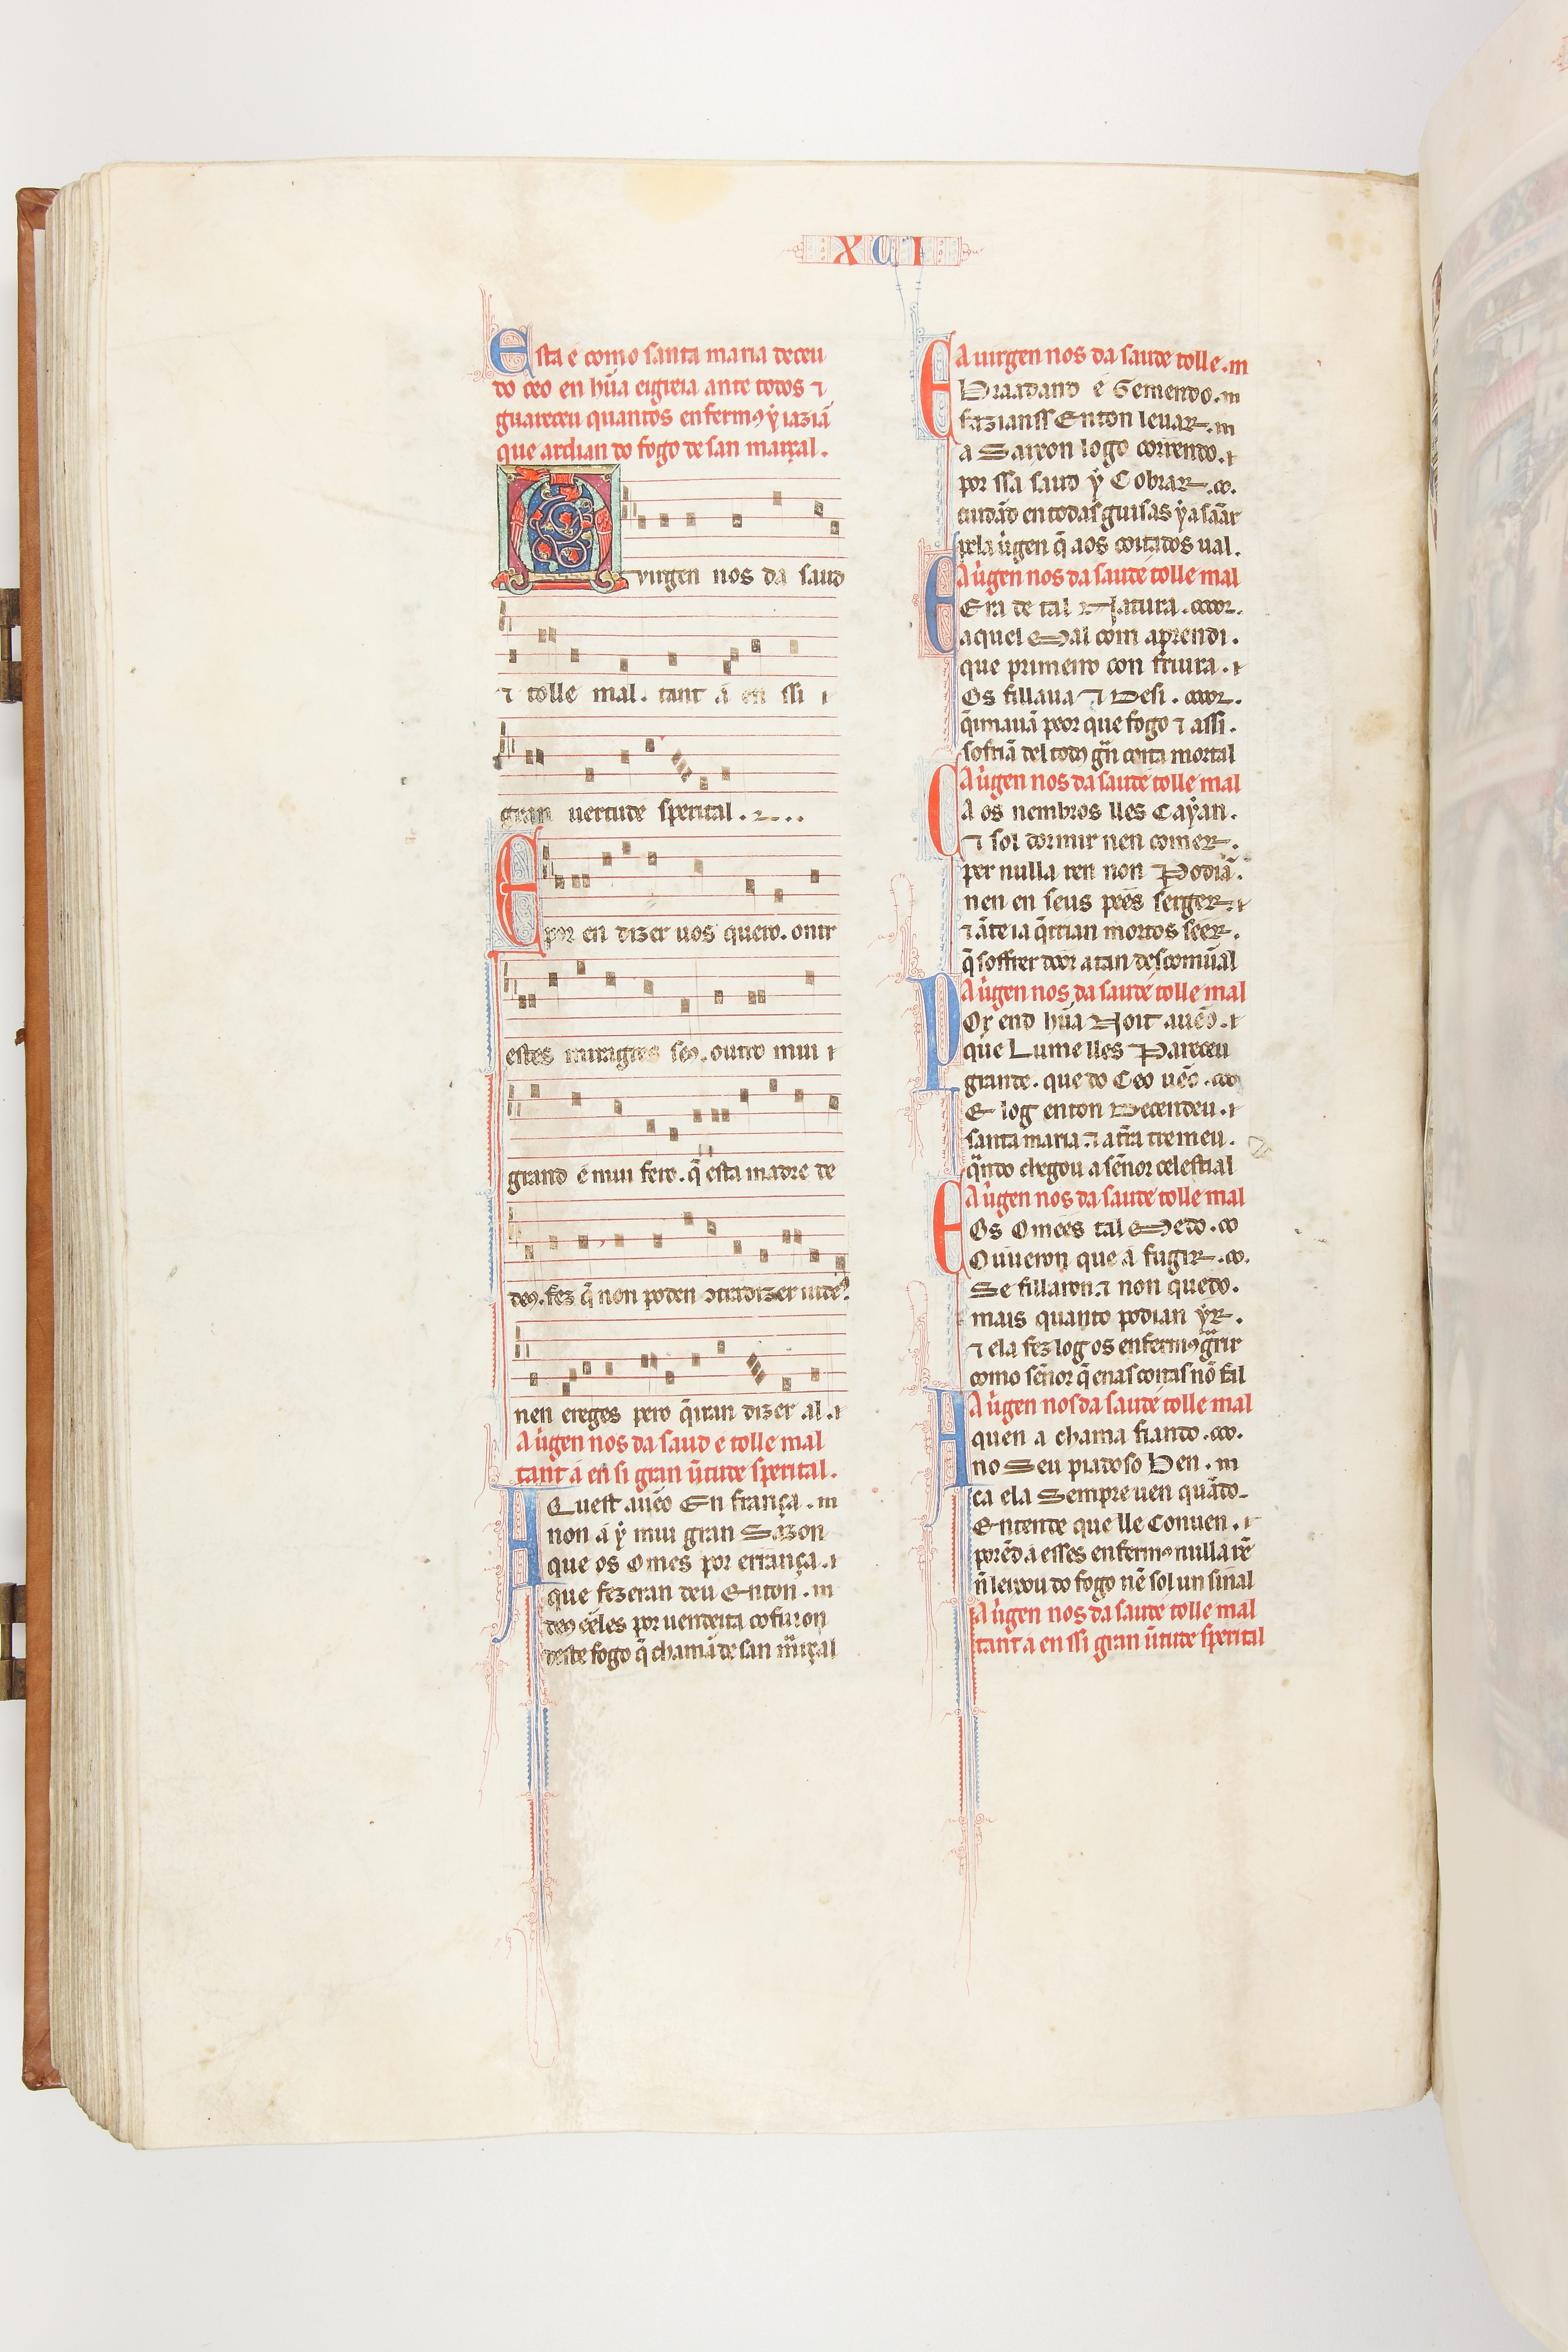 XCI
Esta é como santa maria deceu
do ceo en hũa eigreia ante todos ⁊
guareceu quantos enfermꝯ ẏ iaziã
que ardian do fogo de san marçal.
A virgen nos da saud
⁊ tolle mal. tant á en ssi
gran uertude sperital.
E por en dizer uos quero. ontr
estes miragres seꝯ. outro mui
grand e mui fero. q̃ esta madre de
deꝯ. fez q̃ non poden ↄtradizer iudeꝯ
nen ereges pero q̃iran dizer al.
A uirgen nos da saud e tolle mal
tant á en si gran ũtude sperital.
Aquest aueo En frança.
non á ẏ mui gran Sazon
que os Omes por errança.
que fezeran deu Enton.
deꝯ eeles por uendeita cofujon
deste fogo q̃ chamã de san marçal
A uirgen nos da saude tolle. m
E Braadand e Gemendo.
fazianss Enton leuar.
a Saixon logo correndo.
por ssa saud ẏ Cobrar.
cuidãd en todas guisas ẏ a sãar
pela uirgen q̃ aos coitados ual.
A uirgen nos da saude tolle mal
E Era de tal Natura.
aquel Mal com aprendi.
que primeiro con friura.
Os fillaua ⁊ Desi.
q̃imauã peor que fogo ⁊ assi.
sofriã del todꝯ grã coita mortal
A uirgen nos da saude tolle mal
Ca os nembros lles Caẏan.
⁊ sol dormir nen comer.
per nulla ren non Podiã.
nen en seus pees serger.
⁊ ãte ia q̃rrian mortos seer.
q̃ soffrer door atan descomũal
A uirgen nos da saude tolle mal
Por end hũa Noit aueo.
que Lume lles Pareceu
grande. que do Ceo ueo.
E log enton Decendeu.
santa maria. ⁊ a terra tremeu.
quando chegou a sẽnor celestial
A uirgen nos da saude tolle mal
E Os Omees tal Medo.
Ouueron que á fugir.
Se fillaron. ⁊ non quedo.
mais quanto podian ẏr.
⁊ ela fez log os enfermꝯ guarir
como sẽnor q̃ enas coitas nõ fal
A uirgen nos da saude tolle mal
A quen a chama fiando.
no Seu piadoso Ben.
ca ela Sempre uen quãdo
Entende que lle Conuen.
porẽd á esses enfermꝯ nulla rẽ
ñ leixou do fogo nẽ sol un sinal
A uirgen nos da saude tolle mal
tant á en ssi gran ũtude sperital